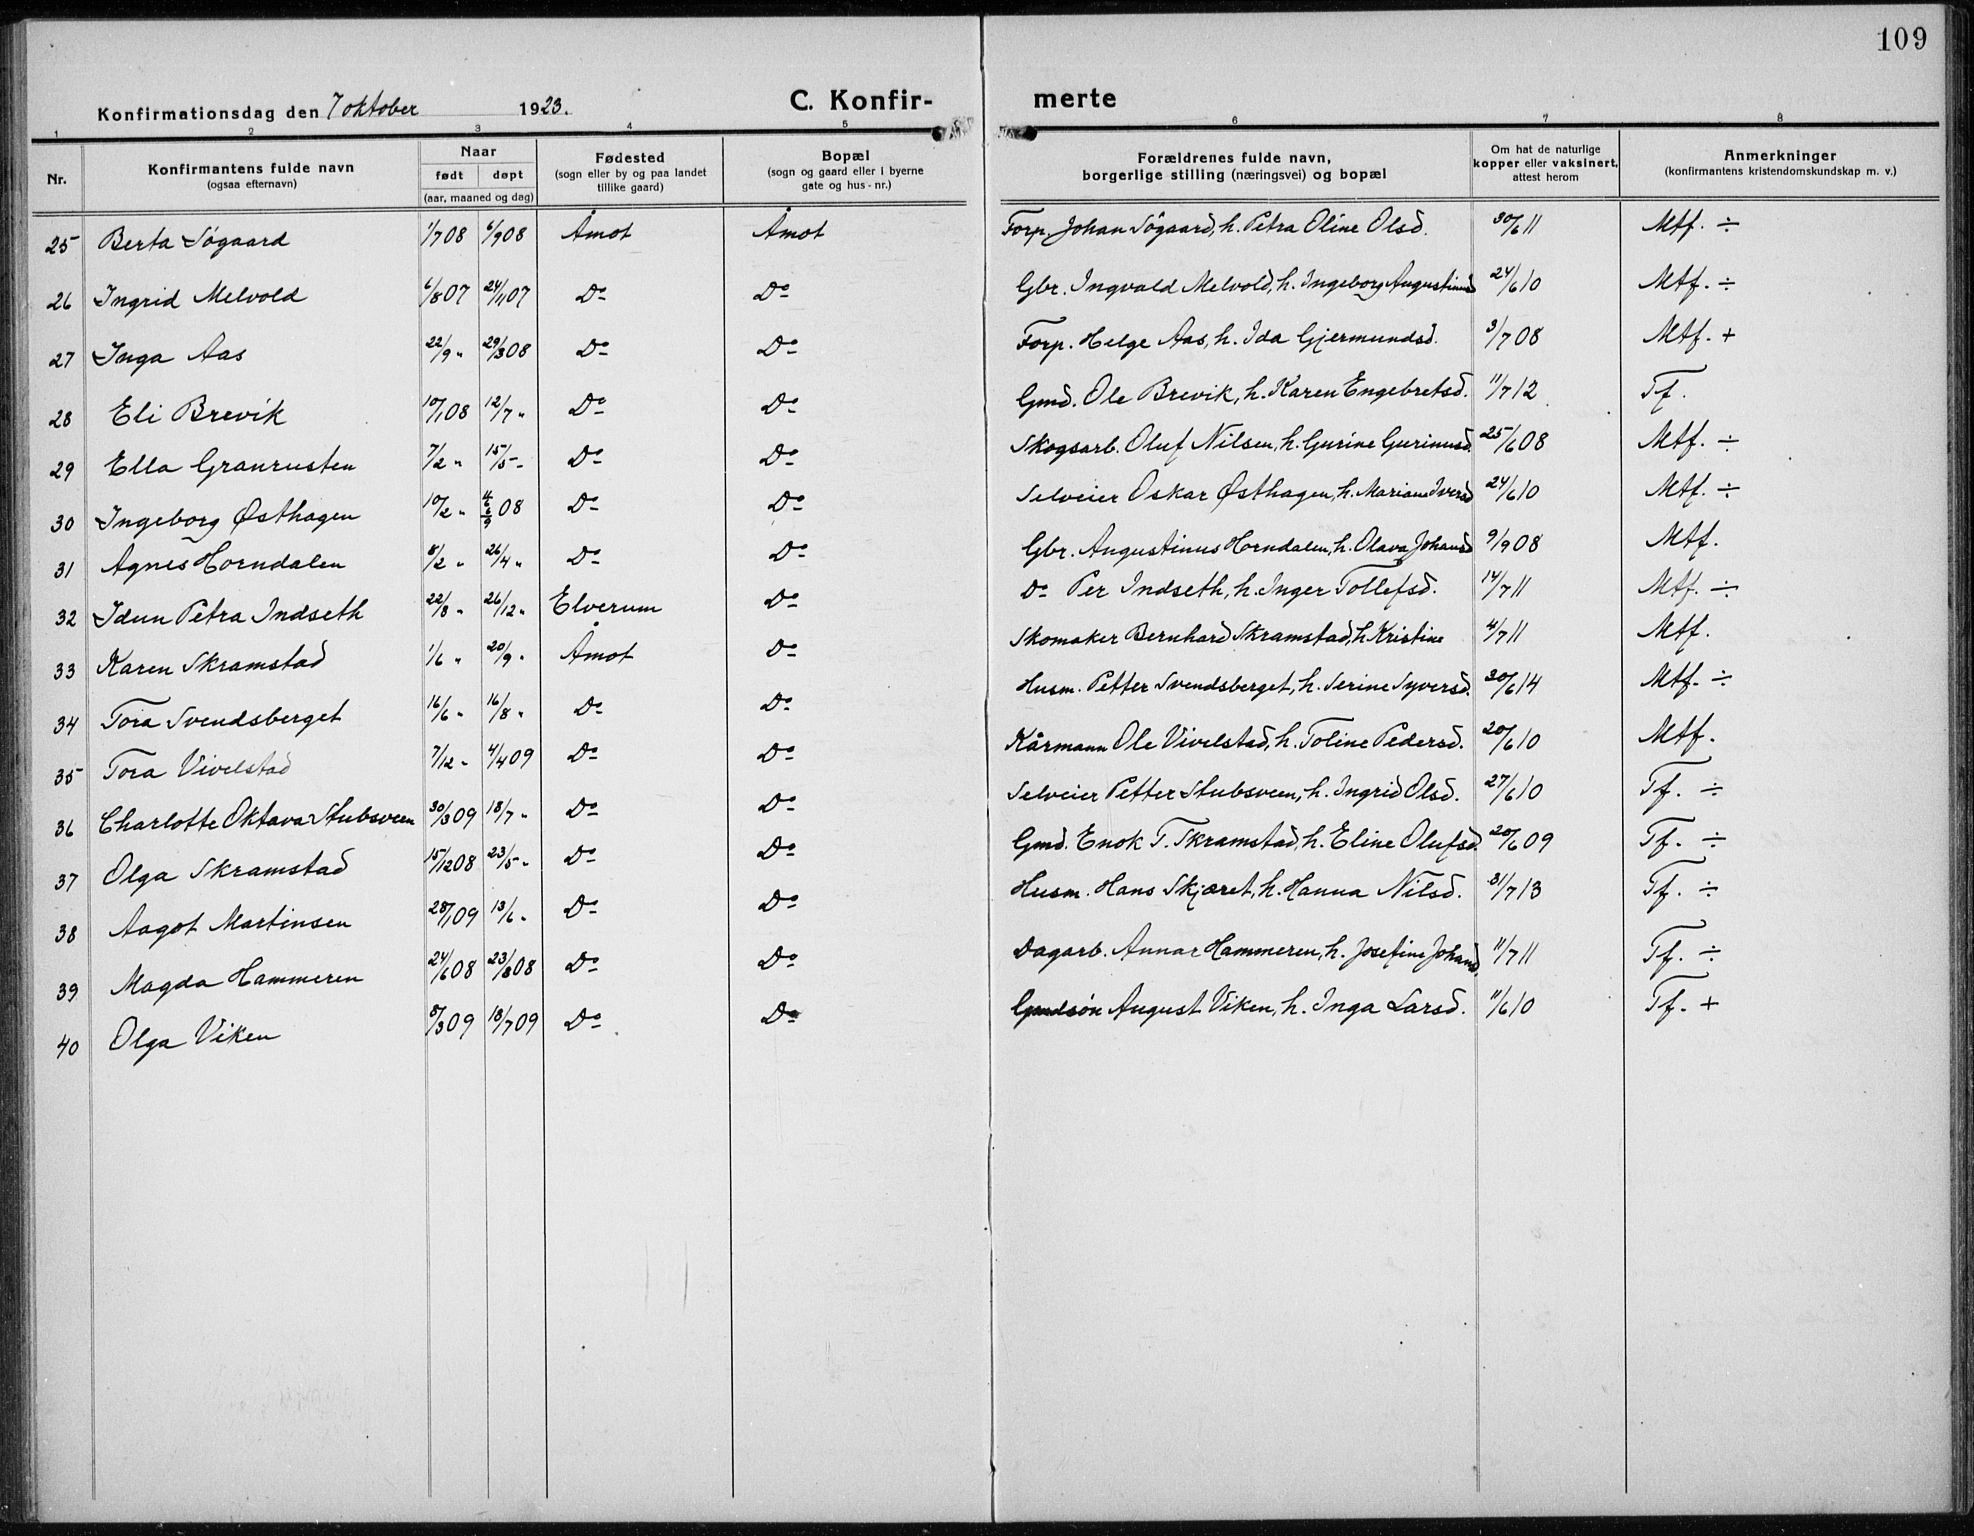 109
Konfirmationsdag den 7 oktober 1923. C. Konfir- merte
1 2 3 4 5 6 7 8
Nr. Konfirmantens fulde navn (ogsaa efternavn) Naar født døpt (aar, maaned og dag) Fødested (sogn eller by og paa landet tillike gaard) Bopæl (sogn og gaard eller i byerne gate og hus-nr.) Forældrenes fulde navn, borgerlige stilling (næringsvei) og bopæl Om hat de naturlige kopper eller vaksinert, attest herom Anmerkninger (konfirmantens kristendomskundskap m. v.)
25 Berta Søgaard 1/7 08 6/9 08 Åmot Åmot Forp. Johan Søgaard, h. Petra Oline Olsd. 30/6 11 Mtf. ÷
26 Ingrid Melvold 6/8 07 24/11 07 Do Do Gbr. Ingvald Melvold, h. Ingeborg Augustinusd 24/6 10 Mtf. ÷
27 Inga Aas 22/9 " 29/3 08 Do Do Forp. Helge Aas, h. Ida Gjermundsd. 3/7 08 Mtf. +
28 Eli Brevik 10/1 08 12/7 " Do Do Gmd. Ole Brevik, h. Karen Engebretsd. 11/7 12 Tf.
29 Ella Granrusten 7/2 " 15/5 - Do Do Skogsarb. Oluf Nilsen, h. Gurine Gurinusd. 25/6 08 Mtf. ÷
30 Ingeborg Østhagen 10/2 " 08 Do Do Selveier Oskar Østhagen, h. Mariane Iversd 24/6 10 Mtf. ÷
31 Agnes Horndalen 8/2 " 26/4 " Do Do Gbr. Augustinus Horndalen, h. Olava Johansd 9/9 08 Mtf.
32 Idun Petra Indseth 22/8 " 26/12 " Elverum Do Do Per Indseth, h. Inger Tollefsd. 14/7 11 Mtf. ÷
33 Karen Skramstad 1/6 " 20/9 " Åmot Do Skomaker Bernhard Skramstad, h. Kristine 4/7 11 Mtf.
34 Tora Svendsberget 16/6 " 16/8 " Do Do Husm. Petter Svendsberget, h. Serine Syversd. 30/6 14 Mtf. ÷
35 Tora Vivelstad 7/12 - 4/4 09 Do Do Kårmann Ole Vivelstad, h. Toline Pedersd. 20/6 10 Mtf.
36 Charlotte Oktava Stubsveen 30/3 09 18/7 " Do Do Selveier Petter Stubsveen, h. Ingrid Olsd. 27/6 10 Tf. ÷
37 Olga Skramstad 15/12 08 23/5 " Do Do Gmd. Enok T. Skramstad, h. Eline Olufsd. 20/6 09 Tf. ÷
38 Aagot Martinsen 28/1 09 13/6 " Do Do Husm. Hans Skjæret, h. Hanna Nilsd. 31/7 13 Tf. ÷
39 Magda Hammeren 24/6 08 23/8 08 Do Do Dagarb. Annar Hammeren, h. Josefine Johansd. 11/7 11 Tf. ÷
40 Olga Viken 8/3 09 18/7 09 Do Do Gmdsøn August Viken, h. Inga Larsd. 11/6 10 Tf. +